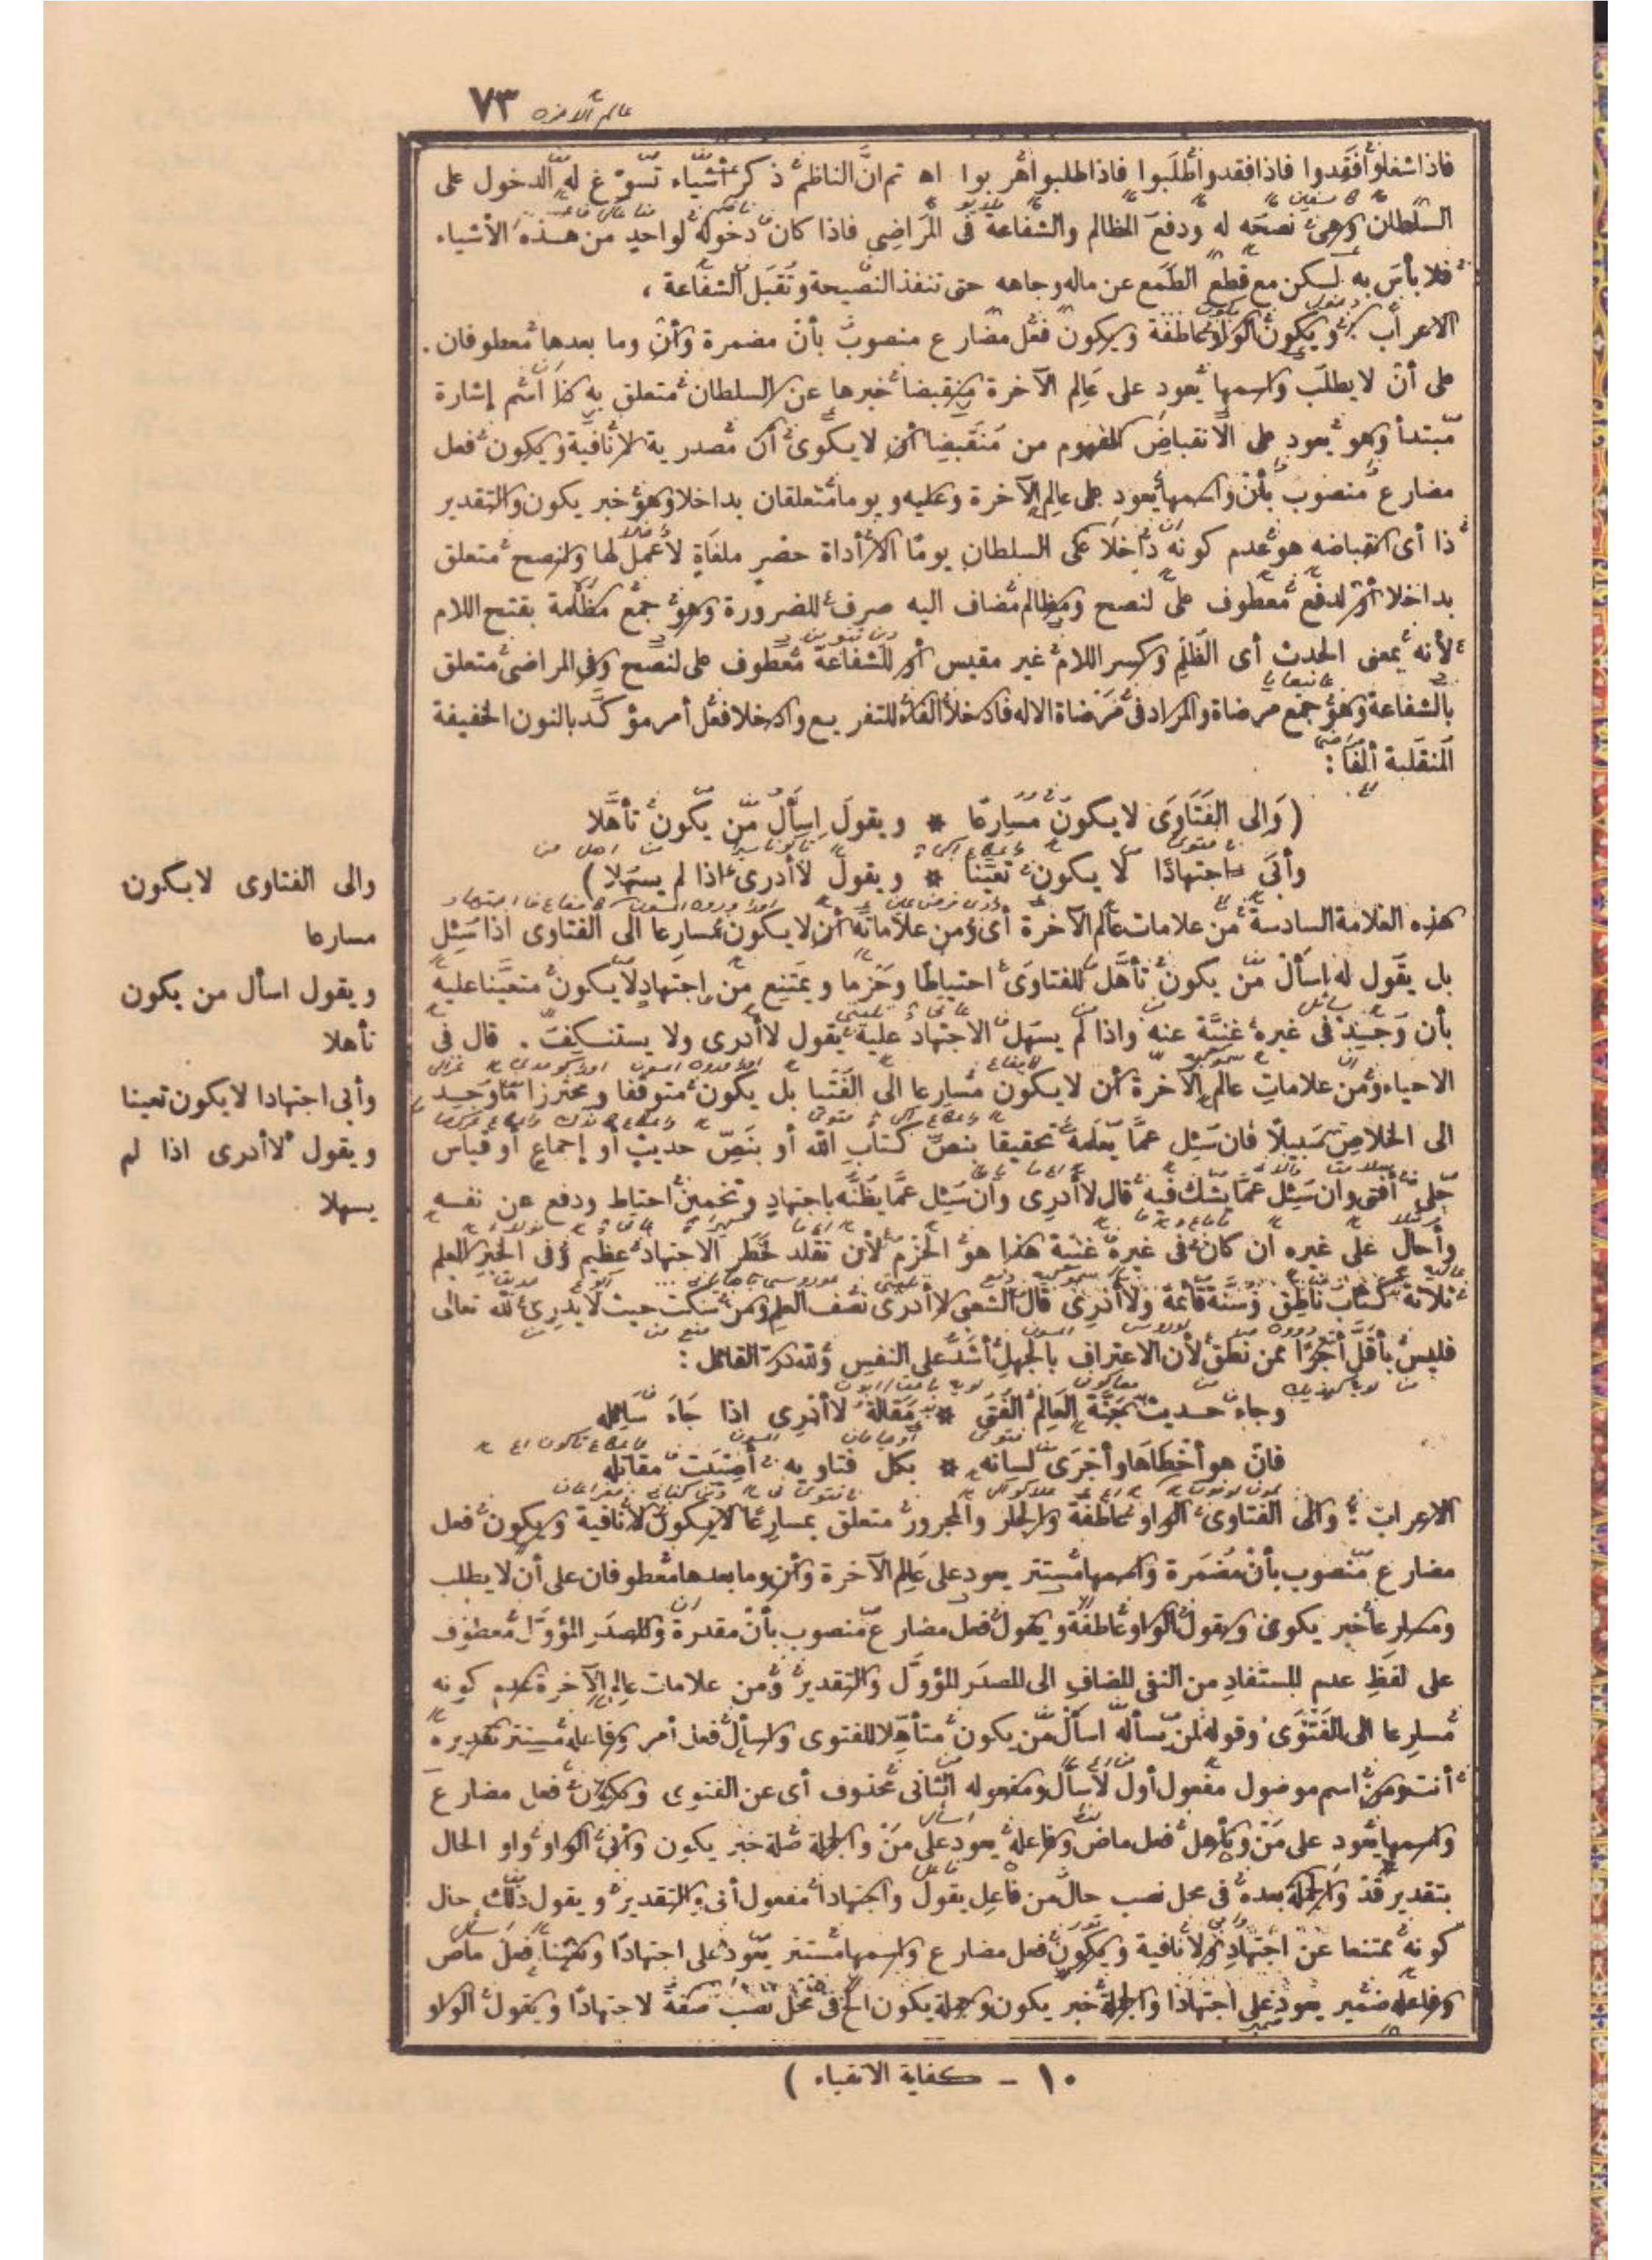 ٧٣
فاذا شغلوا فقدوا فاذا فقدوا طلبوا فاذا طلبوا هربوا اه ثم ان الناظم ذكر أشياء تسوّغ له الدخول على
السلطان وهى نصحه له ودفع المظالم والشفاعة فى المراضى فاذا كان دخوله لواحد من هذه الأشياء
فلا بأس به لكن مع قطع الطمع عن ماله وجاهه حتى تنفذ النصيحة وتقبل الشفاعة ،
الاعراب ويكون الواو عاطفة ويكون فعل مضارع منصوب بأن مضمرة وأن وما بعدها معطوفان .
على أن لا يطلب واسمها يعود على عالم الآخرة منقبضا خبرها عن السلطان متعلق به ذا اسم إشارة
مبتدأ وهو يعود على الانقباض المفهوم من منقبضا أن لا يكون أن مصدرية لا نافية ويكون فعل
مضارع منصوب بأن واسمها يعود على عالم الآخرة وعليه ويوما متعلقان بداخلا وهو خبر يكون والتقدير
ذا أى انقباضه هو عدم كونه داخلا على السلطان يوما الا أداة حصر ملغاة لا عمل لها ولنصح متعلق
بداخلا أو لدفع معطوف على لنصح ومظالم مضاف اليه صرف للضرورة وهو جمع مظلمة بفتح اللام
لأنه بمعنى الحدث أى الظلم وكسر اللام غير مقيس أو للشفاعة معطوف على لنصح وفى المراضى متعلق
بالشفاعة وهو جمع مرضاة والمراد فى مرضاة الاله فادخلا الفاء للتفريع وادخلا فعل أمر مؤكد بالنون الخفيفة
المنقلبة ألفا :
( وَالى الفَتَاوَى لا يكونَ مسارعًا * ويقولَ اِسأل مَن يكون تأهّلا
وأبَى اجتهادًا لا يكون تعيّنا * ويقول لا أدرى اذا لم يسهلا )
هذه العلامة السادسة من علامات عالم الآخرة أى ومن علاماته أن لا يكون مسارعا الى الفتاوى اذا سئل
بل يقول له اسأل من يكون تأهل للفتاوى احتياطا وحزما ويمتنع من اجتهاد لا يكون متعينا عليه
بأن وجد فى غيره غنية عنه واذا لم يسهل الاجتهاد عليه يقول لا أدرى ولا يستنكف . قال فى
الاحياء ومن علامات عالم الآخرة أن لا يكون مسارعا الى الفتيا بل يكون متوقفا ومحترزا ما وجد
الى الخلاص سبيلا فان سئل عما يعلمه تحقيقا بنص كتاب الله أو بنص حديث أو إجماع أو قياس
جلى أفتى وان سئل عما يشك فيه قال لا أدرى وان سئل عما يظنه باجتهاد وتخمين احتاط ودفع عن نفسه
وأحال على غيره ان كان فى غيره غنية هذا هو الحزم لأن تقلد خطر الاجتهاد عظيم وفى الخبر العلم
ثلاثة كتاب ناطق وسنة قائمة ولا أدرى قال الشعبى لا أدرى نصف العلم ومن سكت حيث لا يدرى لله تعالى
فليس بأقل أجرا ممن نطق لأن الاعتراف بالجهل أشد على النفس ولله در القائل :
وجاء حديث جنة العالم الفتى * مقالة لا أدرى اذا جاء سائله
فان هو أخطاها وأجرى لسانه * بكل فتاويه أصيبت مقاتله
الاعراب : والى الفتاوى الواو عاطفة والجار والمجرور متعلق بمسارعا لا يكون لا نافية ويكون فعل
مضارع منصوب بأن مضمرة واسمها مستتر يعود على عالم الآخرة وأن وما بعدها معطوفان على أن لا يطلب
ومسارعا خبر يكون ويقول الواو عاطفة ويقول فعل مضارع منصوب بأن مقدرة والمصدر المؤول معطوف
على لفظ عدم المستفاد من النفى المضاف الى المصدر المؤول والتقدير ومن علامات عالم الآخرة عدم كونه
مسارعا الى الفتوى وقوله لمن سأله اسأل من يكون متأهلا للفتوى واسأل فعل أمر وفاعله مستتر تقديره
أنت ومن اسم موصول مفعول أول لاسأل ومفعوله الثانى محذوف أى عن الفتوى ويكون فعل مضارع
واسمها يعود على من وتأهل فعل ماض وفاعله يعود على من والجملة صلة خبر يكون وأبى الواو واو الحال
بتقدير قد والجملة بعده فى محل نصب حال من فاعل يقول واجتهادا مفعول أبى والتقدير ويقول ذلك حال
كونه ممتنعا عن اجتهاد ولا نافية ويكون فعل مضارع واسمها مستتر يعود على اجتهادا وتعينا فعل ماض
وفاعله ضمير يعود على اجتهادا والجملة خبر يكون وجملة يكون الخ فى محل نصب صفة لاجتهادا ويقول الواو
والى الفتاوى لا يكون
مسارعا
ويقول اسأل من يكون
تأهلا
وأبى اجتهادا لا يكون تعينا
ويقول لا أدرى اذا لم
يسهلا
١٠ - كفاية الاتقياء )